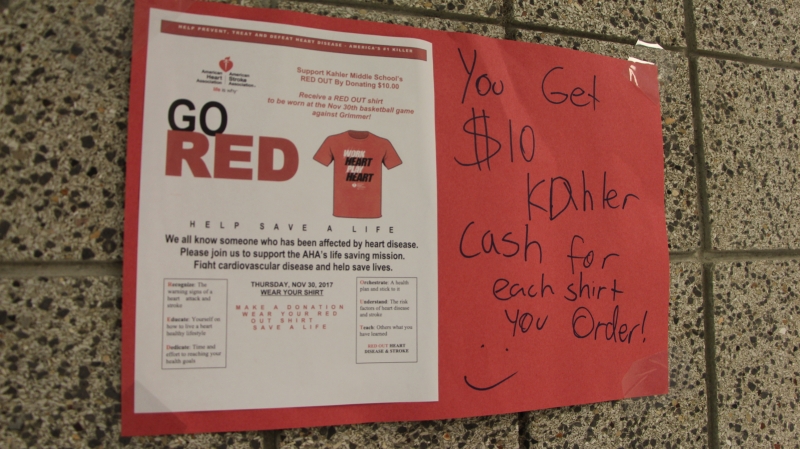 HELP PREVENT, TREAT AND DEFEAT HEART DISEASE - AMERICA'S #1 KILLER
American Heart Association
American Stroke Association
life is why
Support Kahler Middle School's
RED OUT By Donating $10.00
Receive a RED OUT shirt
to be worn at the Nov 30th basketball game
against Grimmer!
GO
RED
WORK
HEART
PLAY
HEART
HELP SAVE A LIFE
We all know someone who has been affected by heart disease.
Please join us to support the AHA's life saving mission.
Fight cardiovascular disease and help save lives.
Recognize: The
warning signs of a
heart attack and
stroke
Educate: Yourself on
how to live a heart
healthy lifestyle
Dedicate: Time and
effort to reaching your
health goals
THURSDAY, NOV 30, 2017
WEAR YOUR SHIRT
MAKE A DONATION
WEAR YOUR RED
OUT SHIRT
SAVE A LIFE
Orchestrate: A health
plan and stick to it
Understand: The risk
factors of heart disease
and stroke
Teach: Others what you
have learned
RED OUT HEART
DISEASE & STROKE
You Get
$10
KDahler
Cash for
each shirt
you Order!